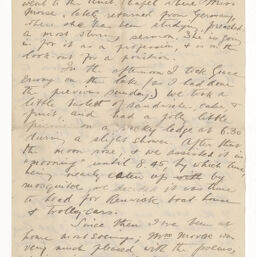 went to the Unit. Chapel where Miss
Morse, lately returned from Germany,
where she has been studying, preached
a most stirring sermon. She is going
in for it as a profession, & is on the
look-out for a position.
In the afternoon I took Grace
Emory on the lake (as I had done
the previous Sunday) we took a
little basket of sandwiches, cake &
fruit, and had a jolly little
on a rocky ledge at 6.30
during a slight shower. After that
the moon rose & we assisted it in
a "mooning" until 8.45 by which time,
being nearly eaten up by
mosquitoes, we decided it was time
to head for Renwick boat house
& trolley cars.
Since then I've been at
home most evenings, Mrs Morse was
very much pleased with the poems,